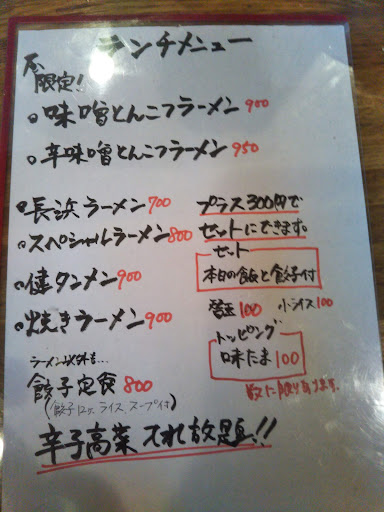 ランチメニュー
限定!
味噌とんこつラーメン 900
辛味噌とんこつラーメン 950
長浜ラーメン 700
スペシャルラーメン 800
タンメン 900
焼きラーメン 900
プラス300円で
セットにできます。
セット
本日の飯と餃子付
替玉 100 小ライス 100
トッピング
味たま 100
数に限りあります。
ラーメン以外も…
餃子定食 800
(餃子12ヶ、ライス スープ付)
辛子高菜 入れ放題!!